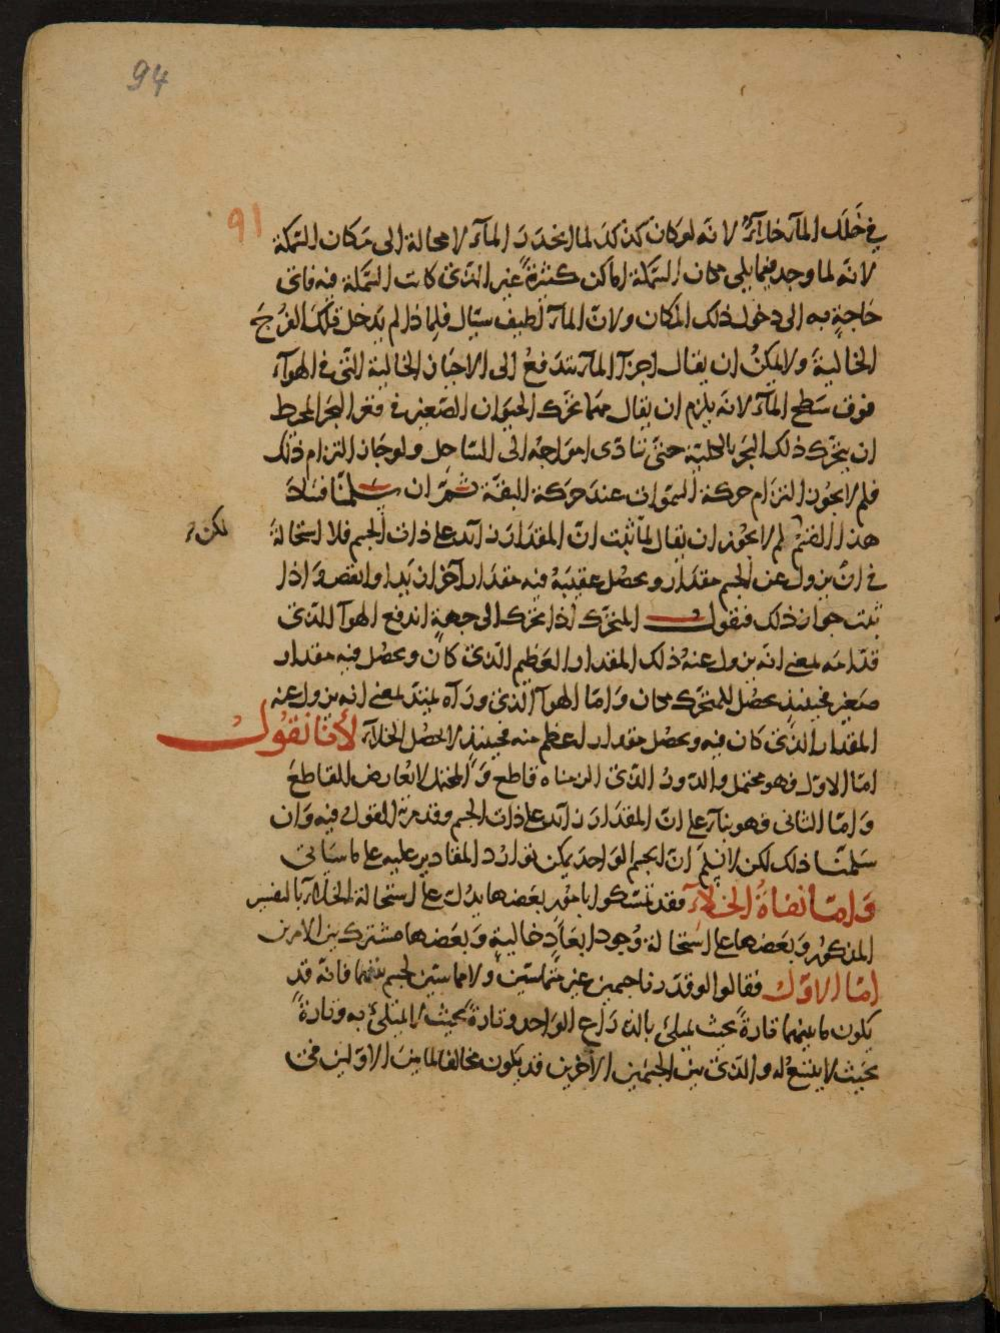 94
91
في خلل الماء خلاء لانه لو كان كذلك لما انحدر الماء لا محالة الى مكان السمكة
لانه لما وجد فيما يلي مكان السمكة اماكن كثيرة غير الذي كانت السمكة فيه فاي
حاجة به الى دخول ذلك المكان ولان الماء لطيف سيال فلماذا لم يدخل تلك الفرج
الخالية ولا يمكن ان يقال اجزاء الماء تندفع الى الاحياز الخالية التي في الهواء
فوق سطح الماء لانه يلزم ان يقال مهما تحرك الحيوان الصغير في قعر البحر المحيط
ان يتحرك ذلك البحر بالكلية حتى تتادى امواجه الى الساحل ولو جاز التزام ذلك
فلم لا يجوز التزام حركة السموات عند حركة البقة ثم ان سلمنا فساد
هذا القسم لم لا يجوز ان يقال لما ثبت ان المقدار زائد على ذات الجسم فلا استحالة
لكن
في ان يزول عن الجسم مقدار ويحصل عقيبه فيه مقدار اخر ازيد او انقص واذا
ثبت جواز ذلك فنقول المتحرك اذا تحرك الى جهة اندفع الهواء الذي
قدامه بمعنى انه يزول عنه ذلك المقدار العظيم الذي كان ويحصل فيه مقدار
صغير فحينئذ يحصل للمتحرك مكان واما الهواء الذي وراه يمتد بمعنى انه يزول عنه
المقدار الذي كان فيه ويحصل مقدار اعظم منه فحينئذ لا يحصل الخلاء لأنا نقول
اما الاول فهو محتمل والدور الذي الزمناه قاطع والمحتمل لا يعارض القاطع
واما الثاني فهو بناء على ان المقدار زائد على ذات الجسم وقد مر القول فيه وان
سلمنا ذلك لكن لا نسلم ان الجسم الواحد يمكن توارد المقادير عليه على ما سياتي
واما نفاة الخلاء فقد تمسكوا بامور بعضها يدل على استحالة الخلاء بالتفسير
المذكور وبعضها على استحالة وجود ابعاد خالية وبعضها مشترك بين الامرين
اما الاول فقالوا لو قدرنا جسمين غير متماسين ولا يماسهما جسم بينهما فانه قد
يكون ما بينهما تارة بحيث يمتلئ بالذراع الواحد وتارة بحيث لا يمتلئ به وتارة
بحيث لا يتسع له والذي بين الجسمين الاخرين قد يكون مخالفا لما بين الاولين في